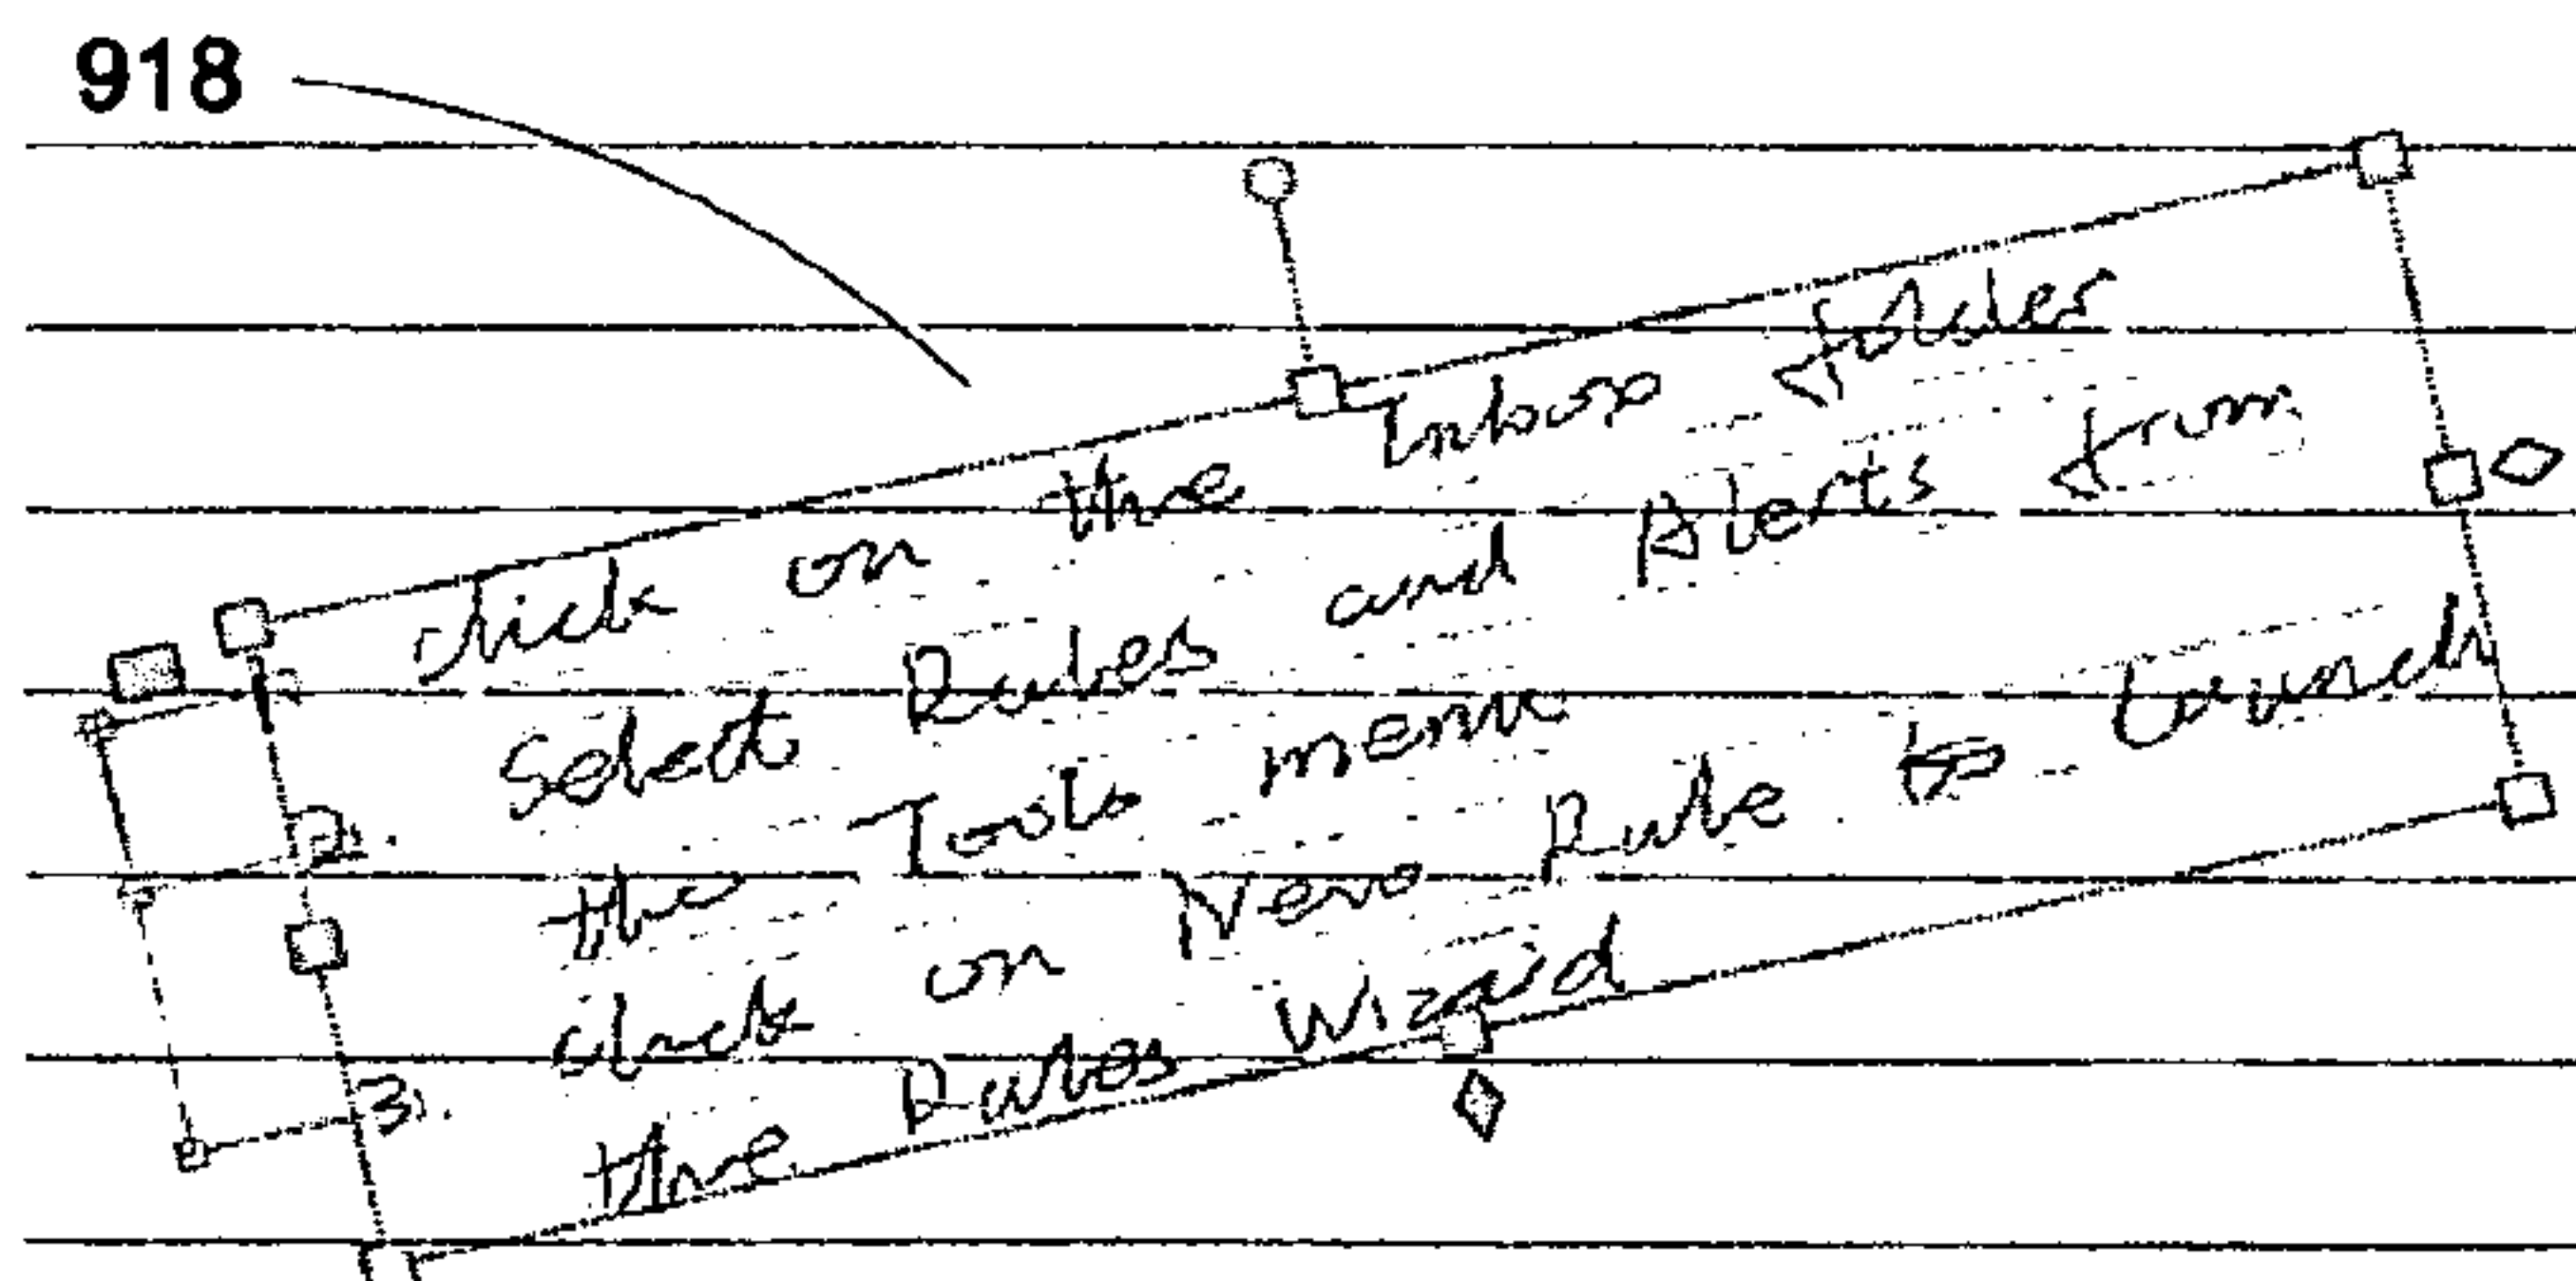 918
click on the Inbox folder
2. Select Rules and Alerts from
the Tools menu
3). click on New Rule to launch
the Rules Wizard